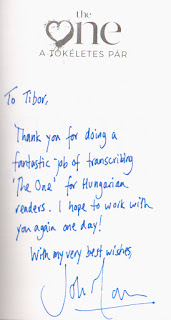 the
one
A TÖKÉLETES PÁR
To Tibor,
Thank you for doing a
fantastic job of transcribing
'The One' for Hungarian
readers. I hope to work with
you again one day!
With my very best wishes,
John